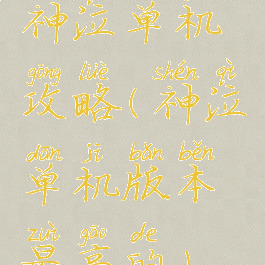 神泣单机
gōng lüè shén qì
攻略(神泣
dān jī bǎn běn
单机版本
zuì gāo de
最高的)